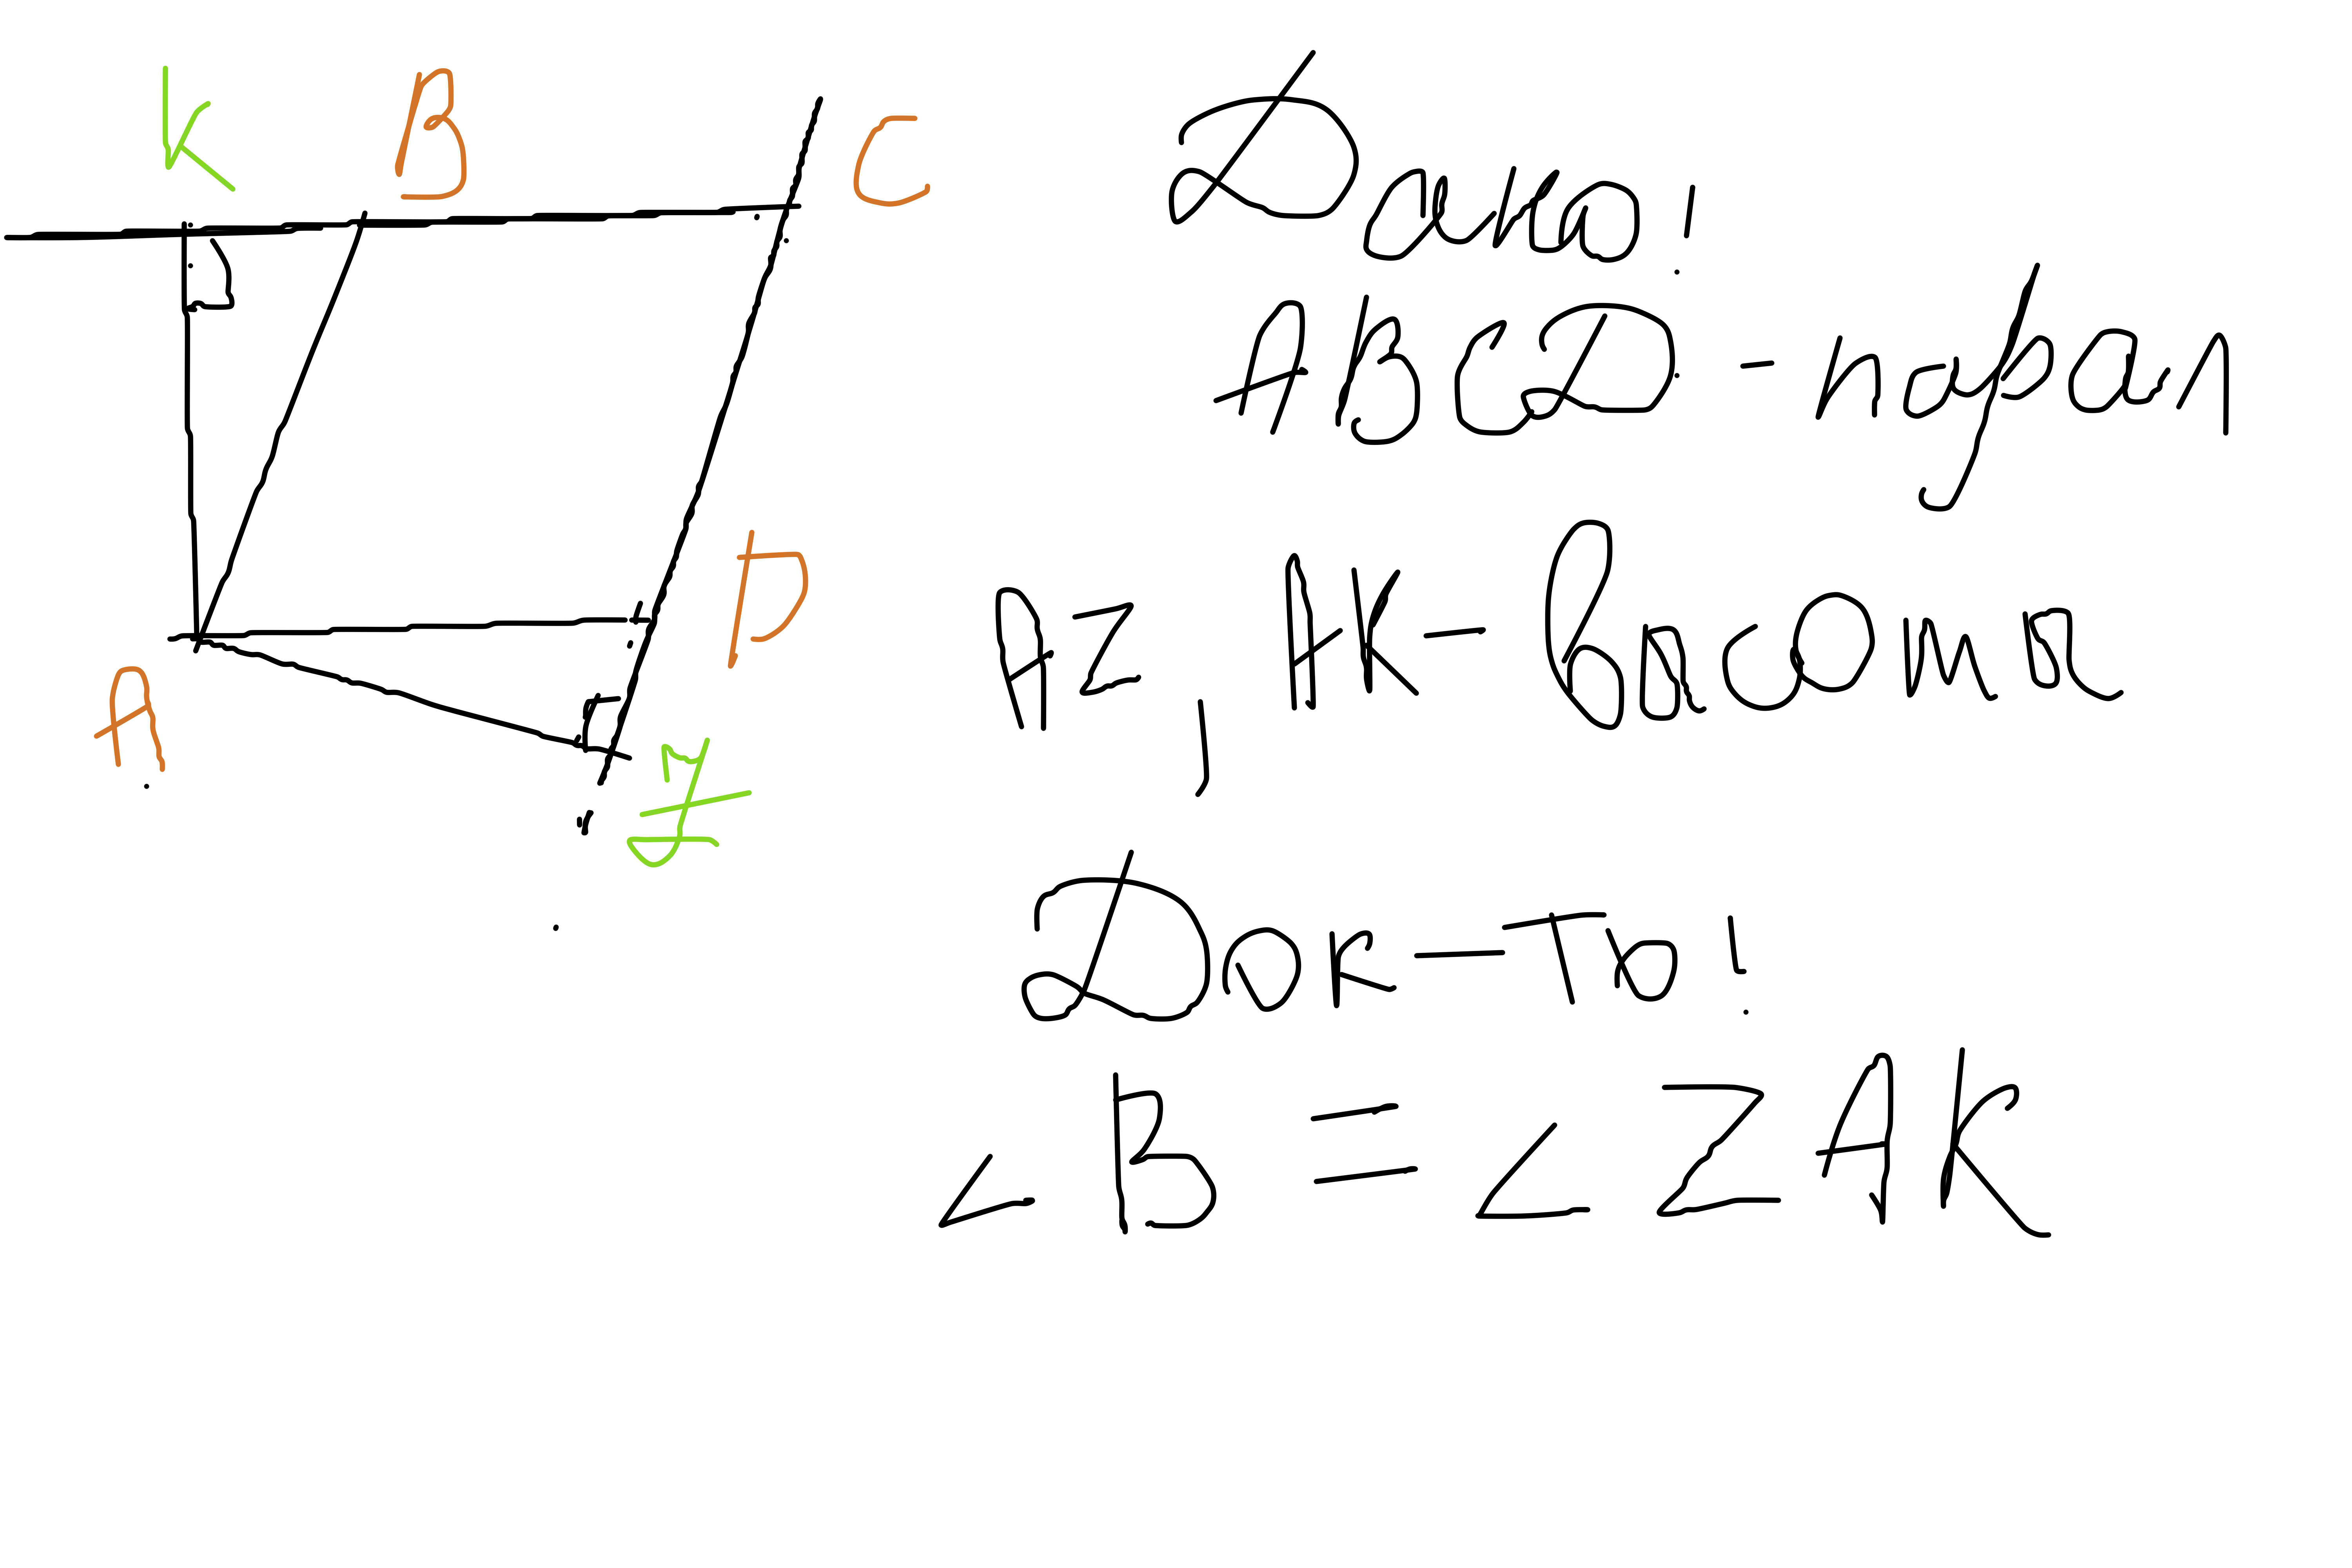 K B C
D
A
Z
Дано!
ABCD - парал
AZ, AK - высоты
Док-ть!
∠B = ∠ZAK